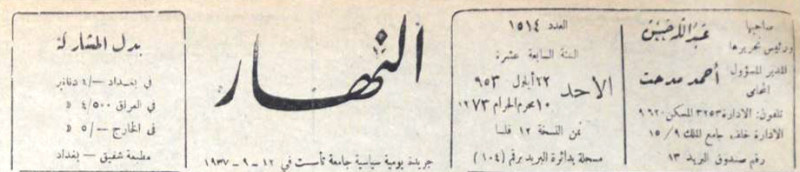 صاحبها
ورئيس تحريرها
المدير المسؤول
المحامي
أحمد مدحت
تلفون: الادارة ٣٢٥٣ المسكن ٩٦٢٠
الادارة خلف جامع الملك ٩ / ١٥
رقم صندوق البريد ١٣
العدد ١٥١٤
السنة السابعة عشرة
الاحد
أيلول ٩٥٣
١٠ محرم الحرام
ثمن النسخة ١٢ فلسا
مسجلة بدائرة البريد برقم (١٠٤)
النهار
جريدة يومية سياسية جامعة تأسست في ١٢ - ٩ - ١٩٣٧
بدل المشاركة
في بغداد -/٤ دنانير
في العراق ٤/٥٠٠ »
في الخارج -/٥ »
مطبعة شفيق - بغداد